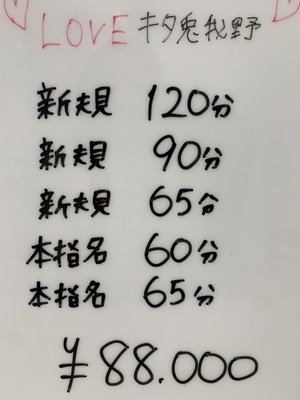 LOVE キタ兎我野
新規 120分
新規 90分
新規 65分
本指名 60分
本指名 65分
¥88.000